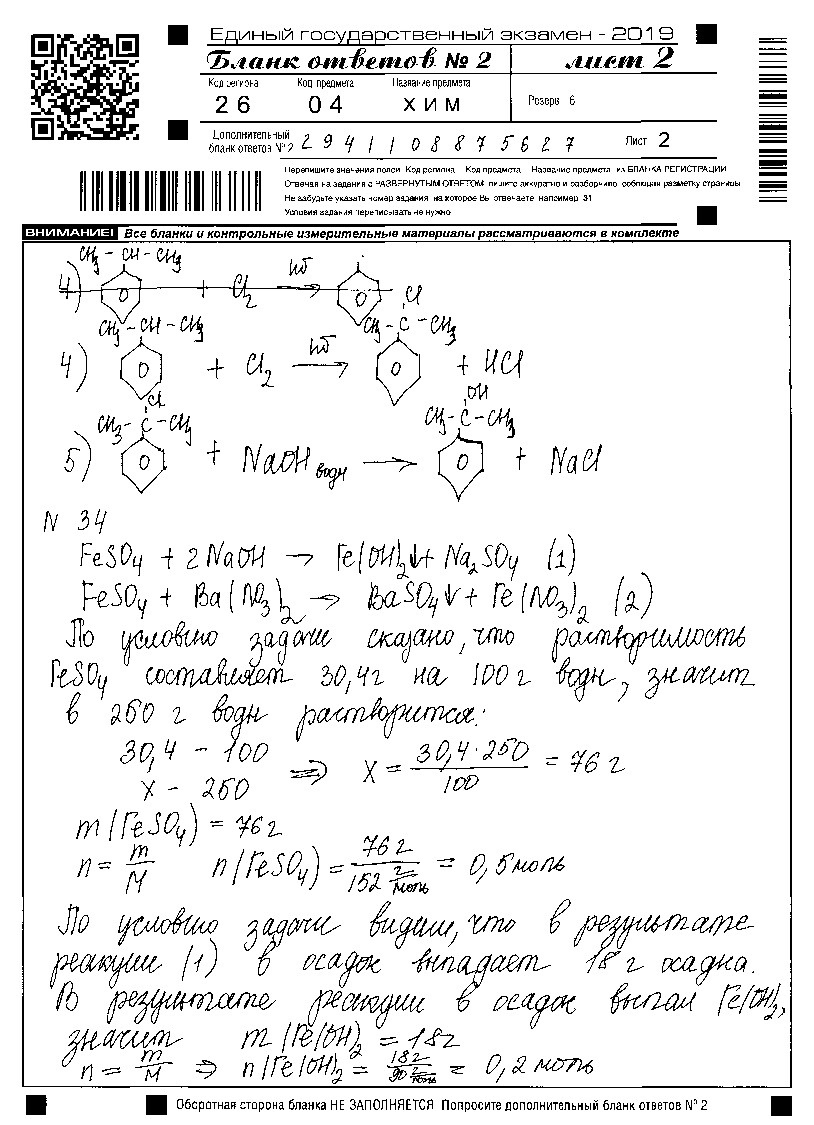 Единый государственный экзамен - 2019
Бланк ответов № 2 лист 2
Код региона Код предмета Название предмета
26 04 ХИМ Резерв 6
Дополнительный бланк ответов № 2 2941108875627 Лист 2
Перепишите значения полей Код региона Код предмета Название предмета из БЛАНКА РЕГИСТРАЦИИ
Отвечая на задания с РАЗВЕРНУТЫМ ОТВЕТОМ пишите аккуратно и разборчиво соблюдая разметку страницы
Не забудьте указать номер задания на которое Вы отвечаете например 31
Условия задания переписывать не нужно
ВНИМАНИЕ! Все бланки и контрольные измерительные материалы рассматриваются в комплекте
CH₃ - CH - CH₃
4) + Cl₂ hδ → Cl
CH₃ - CH - CH₃ CH₃ - C - CH₃
4) + Cl₂ hδ → Cl + HCl
Cl OH
CH₃ - C - CH₃ CH₃ - C - CH₃
5) + NaOH водн → + NaCl
N 34
FeSO₄ + 2NaOH → Fe(OH)₂↓ + Na₂SO₄ (1)
FeSO₄ + Ba(NO₃)₂ → BaSO₄↓ + Fe(NO₃)₂ (2)
По условию задачи сказано, что растворимость
FeSO₄ составляет 30,4г на 100 г воды, значит
в 250 г воды растворится:
30,4 - 100
x - 250 ⇒ x = 30,4·250 / 100 = 76 г
m(FeSO₄) = 76 г
n = m/M n(FeSO₄) = 76 г / 152 г/моль = 0,5 моль
По условию задачи видим, что в результате
реакции (1) в осадок выпадает 18 г осадка.
В результате реакции в осадок выпал Fe(OH)₂,
значит m(Fe(OH)₂ = 18г
n = m/M ⇒ n(Fe(OH)₂ = 18г / 90 г/моль = 0,2 моль
Оборотная сторона бланка НЕ ЗАПОЛНЯЕТСЯ Попросите дополнительный бланк ответов № 2